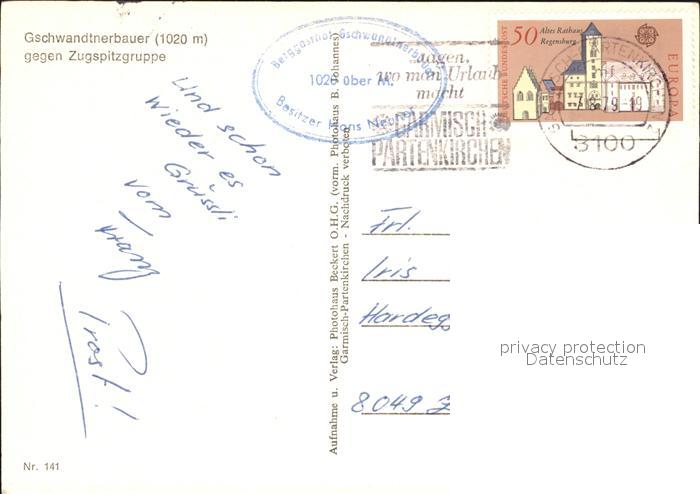 Gschwandtnerbauer (1020 m)
gegen Zugspitzgruppe
Berggasthof Gschwandtnerbauer
1020 über M.
Besitzer Hans
...sagen,
wo man Urlaub
macht
GARMISCH-
PARTENKIRCHEN
DEUTSCHE BUNDESPOST
50
Altes Rathaus
Regensburg
EUROPA
GARMISCH-PARTENKIRCHEN
79-19
8100
Und schon
wieder es
Grüssli
vom
Franz
Prost!
Aufnahme u. Verlag: Photohaus Beckert O.H.G. (vorm. Photohaus B. Johannes)
Garmisch-Partenkirchen - Nachdruck verboten
Frl.
Iris
Hardeg
8049 Z
privacy protection
Datenschutz
Nr. 141